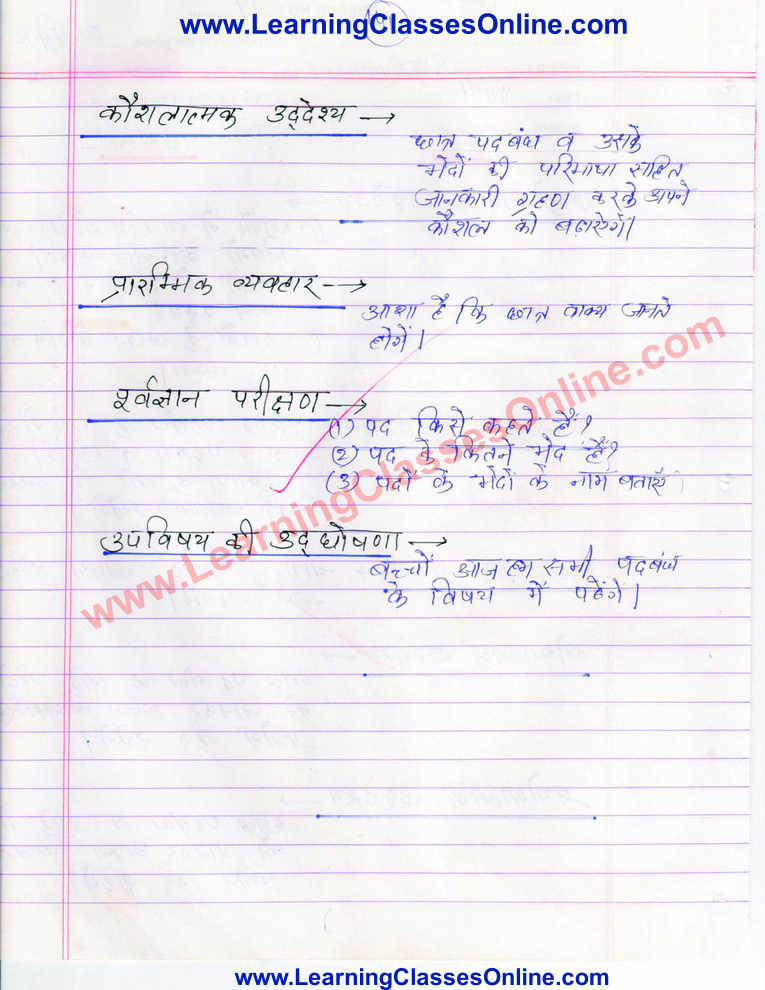 www.LearningClassesOnline.com
कौशलात्मक उद्देश्य →
छात्र पदबंध व उसके
भेदों की परिभाषा सहित
जानकारी ग्रहण करके अपने
कौशल को बढ़ाऐगें।
प्रारम्भिक व्यवहार →
आशा है कि छात्र वाक्य जानते
होगें।
पूर्वज्ञान परीक्षण →
(1) पद किसे कहते हैं?
(2) पद के कितने भेद हैं?
(3) पदों के भेदों के नाम बताएँ
उपविषय की उद्घोषणा →
बच्चों आज हम सभी पदबंध
के विषय में पढेंगें।
www.LearningClassesOnline.com
www.LearningClassesOnline.com